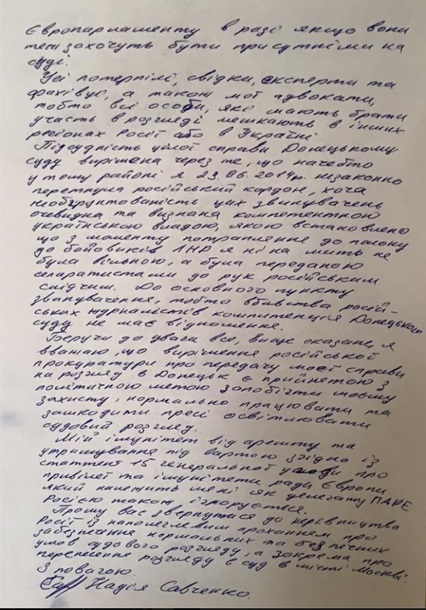 Європарламенту в разі якщо вони
теж захочуть бути присутніми на
суді.
Усі потерпілі, свідки, експерти та
фахівці, а також мої адвокати,
тобто всі особи, які мають брати
участь в розгляді мешкають в інших
регіонах Росії або в Україні
Підсудність цієї справи Донецькому
суду вирішена через те, що начебто
у тому районі я 23.06.2014р. незаконно
перетнула російський кордон, хоча
необґрунтованість цих звинувачень
очевидна та визнана компетентною
українською владою, якою встановлено
що з моменту потрапления до полону
до бойовиків ЛНР я ні на мить не
була вільною, а була переданою
сепаратистами до рук російським
слідчим. До основного пункту
звинувачення, тобто вбивства росій-
ських журналістів компетенція Донецького
суду не має відношення.
Беручи до уваги все, вище сказане, я
вважаю, що вирішення російської
прокуратури про передачу моєї справи
на розгляд в Донецьк є прийнятою з
політичною метою запобігти моєму
захисту, нормально працювати та
зашкодити пресі освітлювати
судовий розгляд.
Мій імунітет від арешту та
утримування під вартою згідно із
статтею 15 генеральної угоди про
привілеї та імунітети ради Європи
який належить мені як делегату ПАРЕ
Росією також ігнорується.
Прошу вас звернутися до керівництва
Росії із наполегливим проханням про
забезпечення нормальних та безпечних
умов судового розгляду, а зокрема про
перенесення розгляду в суд в місті Москві.
З повагою.
Надія Савченко